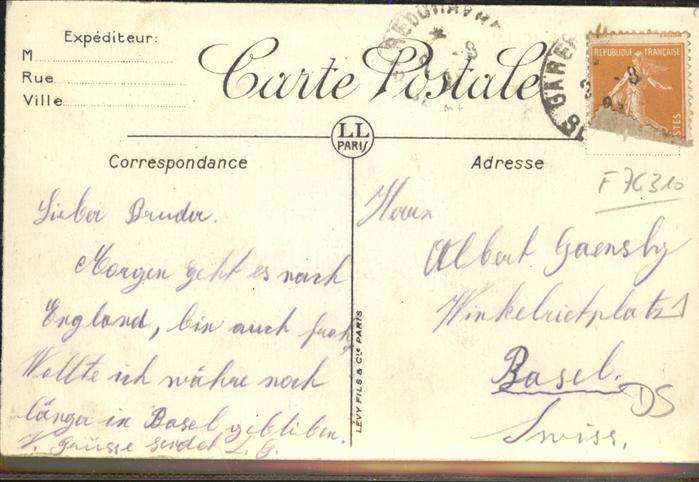 Expéditeur:
M
Rue
Ville
Carte Postale
RÉPUBLIQUE FRANÇAISE
POSTES
LL
PARIS
Correspondance
Adresse
F 76.310
Lieber Bruder.
Morgen geht es nach
England, bin auch froh,
Wollte ich währe noch
länger in Basel geblieben.
V. Grüsse sendet L. G.
LÉVY FILS & Cie PARIS
Herrn
Albert
Winkelriedplatz 1
Basel.
DS
Swiss.